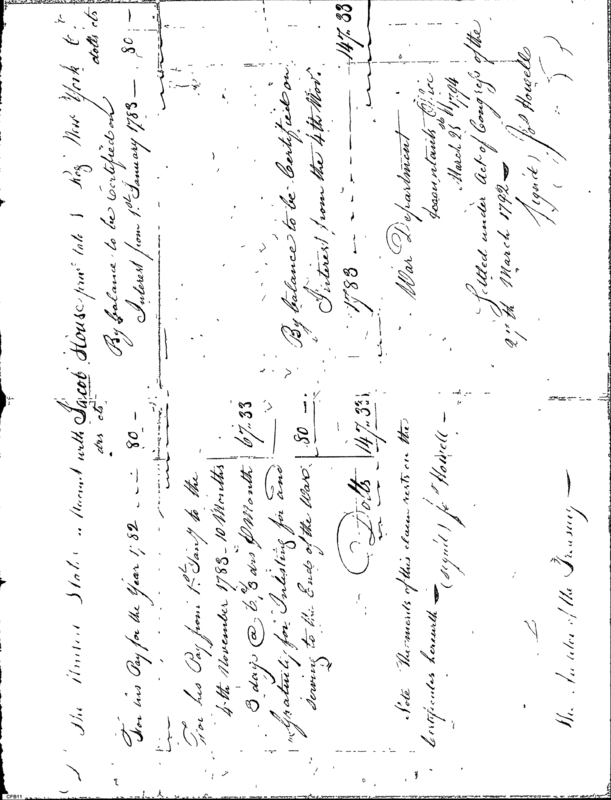 The United States in Account with Jacob House priv late 1 Reg New York
drs cts
dolls cts
For his Pay for the Year 1782 80 —
By balance to be Certified on
Interest from 1st January 1783 — 80 —
For his Pay from 1st Jany to the
4th November 1783 - 10 Months
3 days @ 6 2/3 drs P Month 67.33
Gratuity for Inlisting for and
serving to the End of the War. 80 —
Dolls 147.33
By balance to be Certified on
Interest from the 4th Nov.
1783 147.33
Note The merits of this claim rests on the
Certificates herewith — (signed) Jos Howell —
War Department
Accountants Office
March 25th 1794
Settled under Act of Congress of the
27th March 1792 —
(signed) Jos Howell
The Auditor of the Treasury —
CFB11